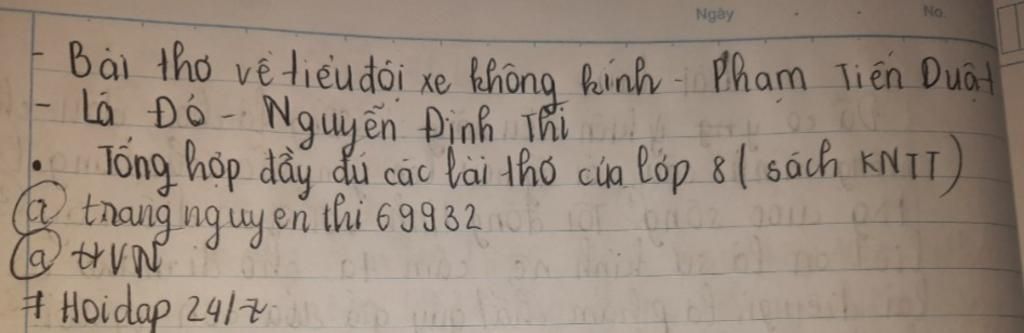 Ngày No.
- Bài thơ về tiểu đội xe không kính - Phạm Tiến Duật
- Lá Đỏ - Nguyễn Đình Thi
• Tổng hợp đầy đủ các bài thơ của lớp 8 ( sách KNTT )
@ trangnguyenthi69932
@ HVN
# Hoidap 24/7